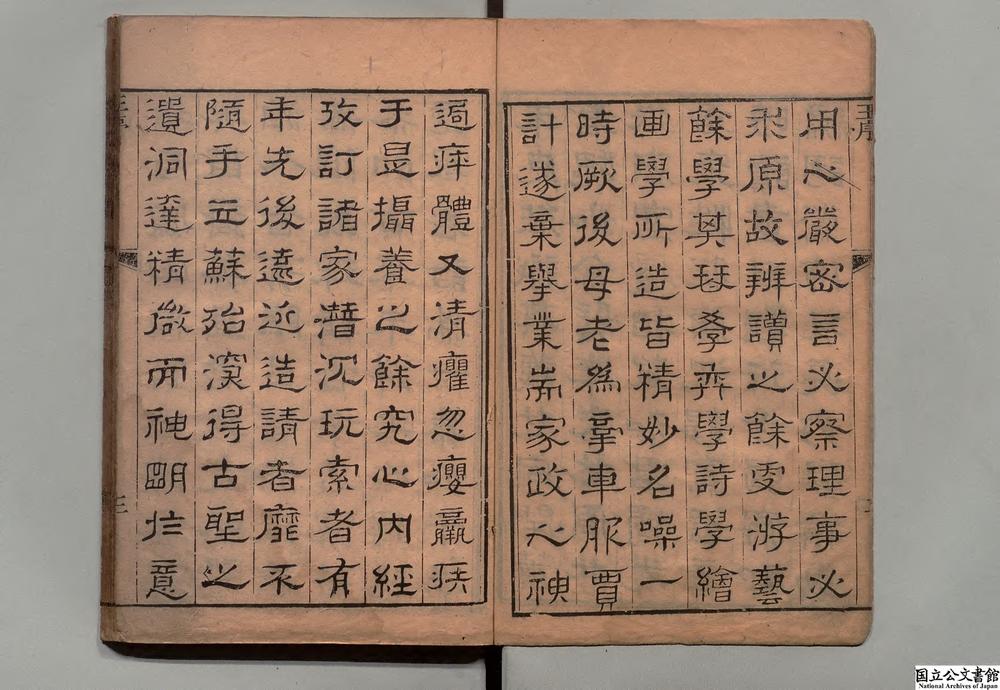 王序
用心嚴密言必察理事必
求原故辨讀之餘更游藝
餘學其琴學弈學詩學繪
画學所造皆精妙名噪一
時厥後母老為牽車服賈
計遂棄舉業耑家政心神
過瘁體又清癯忽癭羸疾
于是攝養之餘究心内經
攷訂諸家潛沉玩索者有
年先後遠近造請者靡不
隨手立蘇殆深得古聖之
遺洞達精微而神明於意
王序
三
国立公文書館
National Archives of Japan